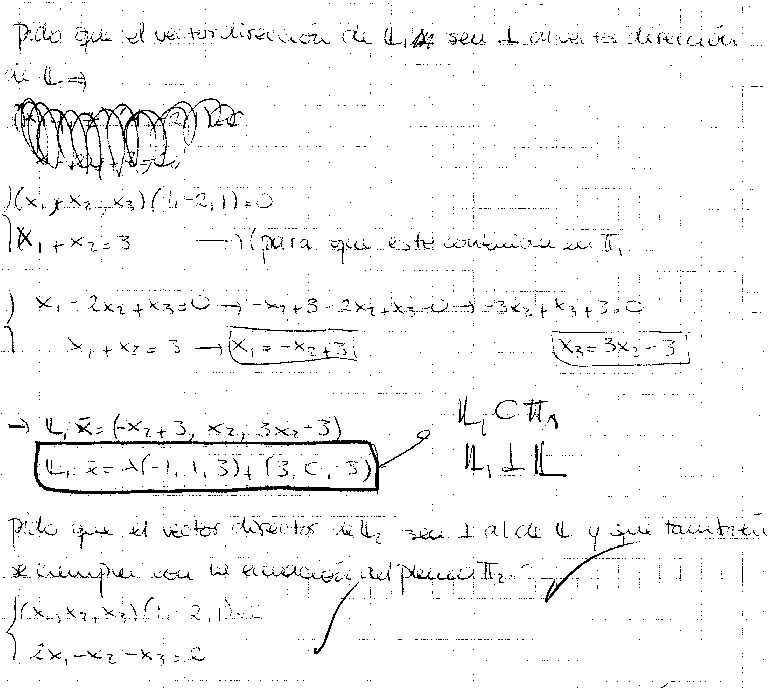 pido que el vector dirección de 𝕃₁ sea ⊥ al vector dirección
de 𝕃 ⇒
(x₁, x₂, x₃)(1,-2,1)=0
x₁ + x₂ = 3 → (para que esté contenida en π₁
x₁ - 2x₂ + x₃ = 0 → -x₂ + 3 - 2x₂ + x₃ = 0 → -3x₂ + x₃ + 3 = 0
x₁ + x₂ = 3 → x₁ = -x₂ + 3 x₃ = 3x₂ - 3
→ 𝕃₁ x̄ = (-x₂+3, x₂, 3x₂-3) 𝕃₁ ⊂ π₁
𝕃₁ x̄ = λ(-1, 1, 3) + (3, 0, -3) 𝕃₁ ⊥ 𝕃
pido que el vector director de 𝕃₂ sea ⊥ al de 𝕃 y que también
se cumpla con la ecuación del plano π₂
(x₁, x₂, x₃)(1, -2, 1) =
2x₁ - x₂ - x₃ = 2